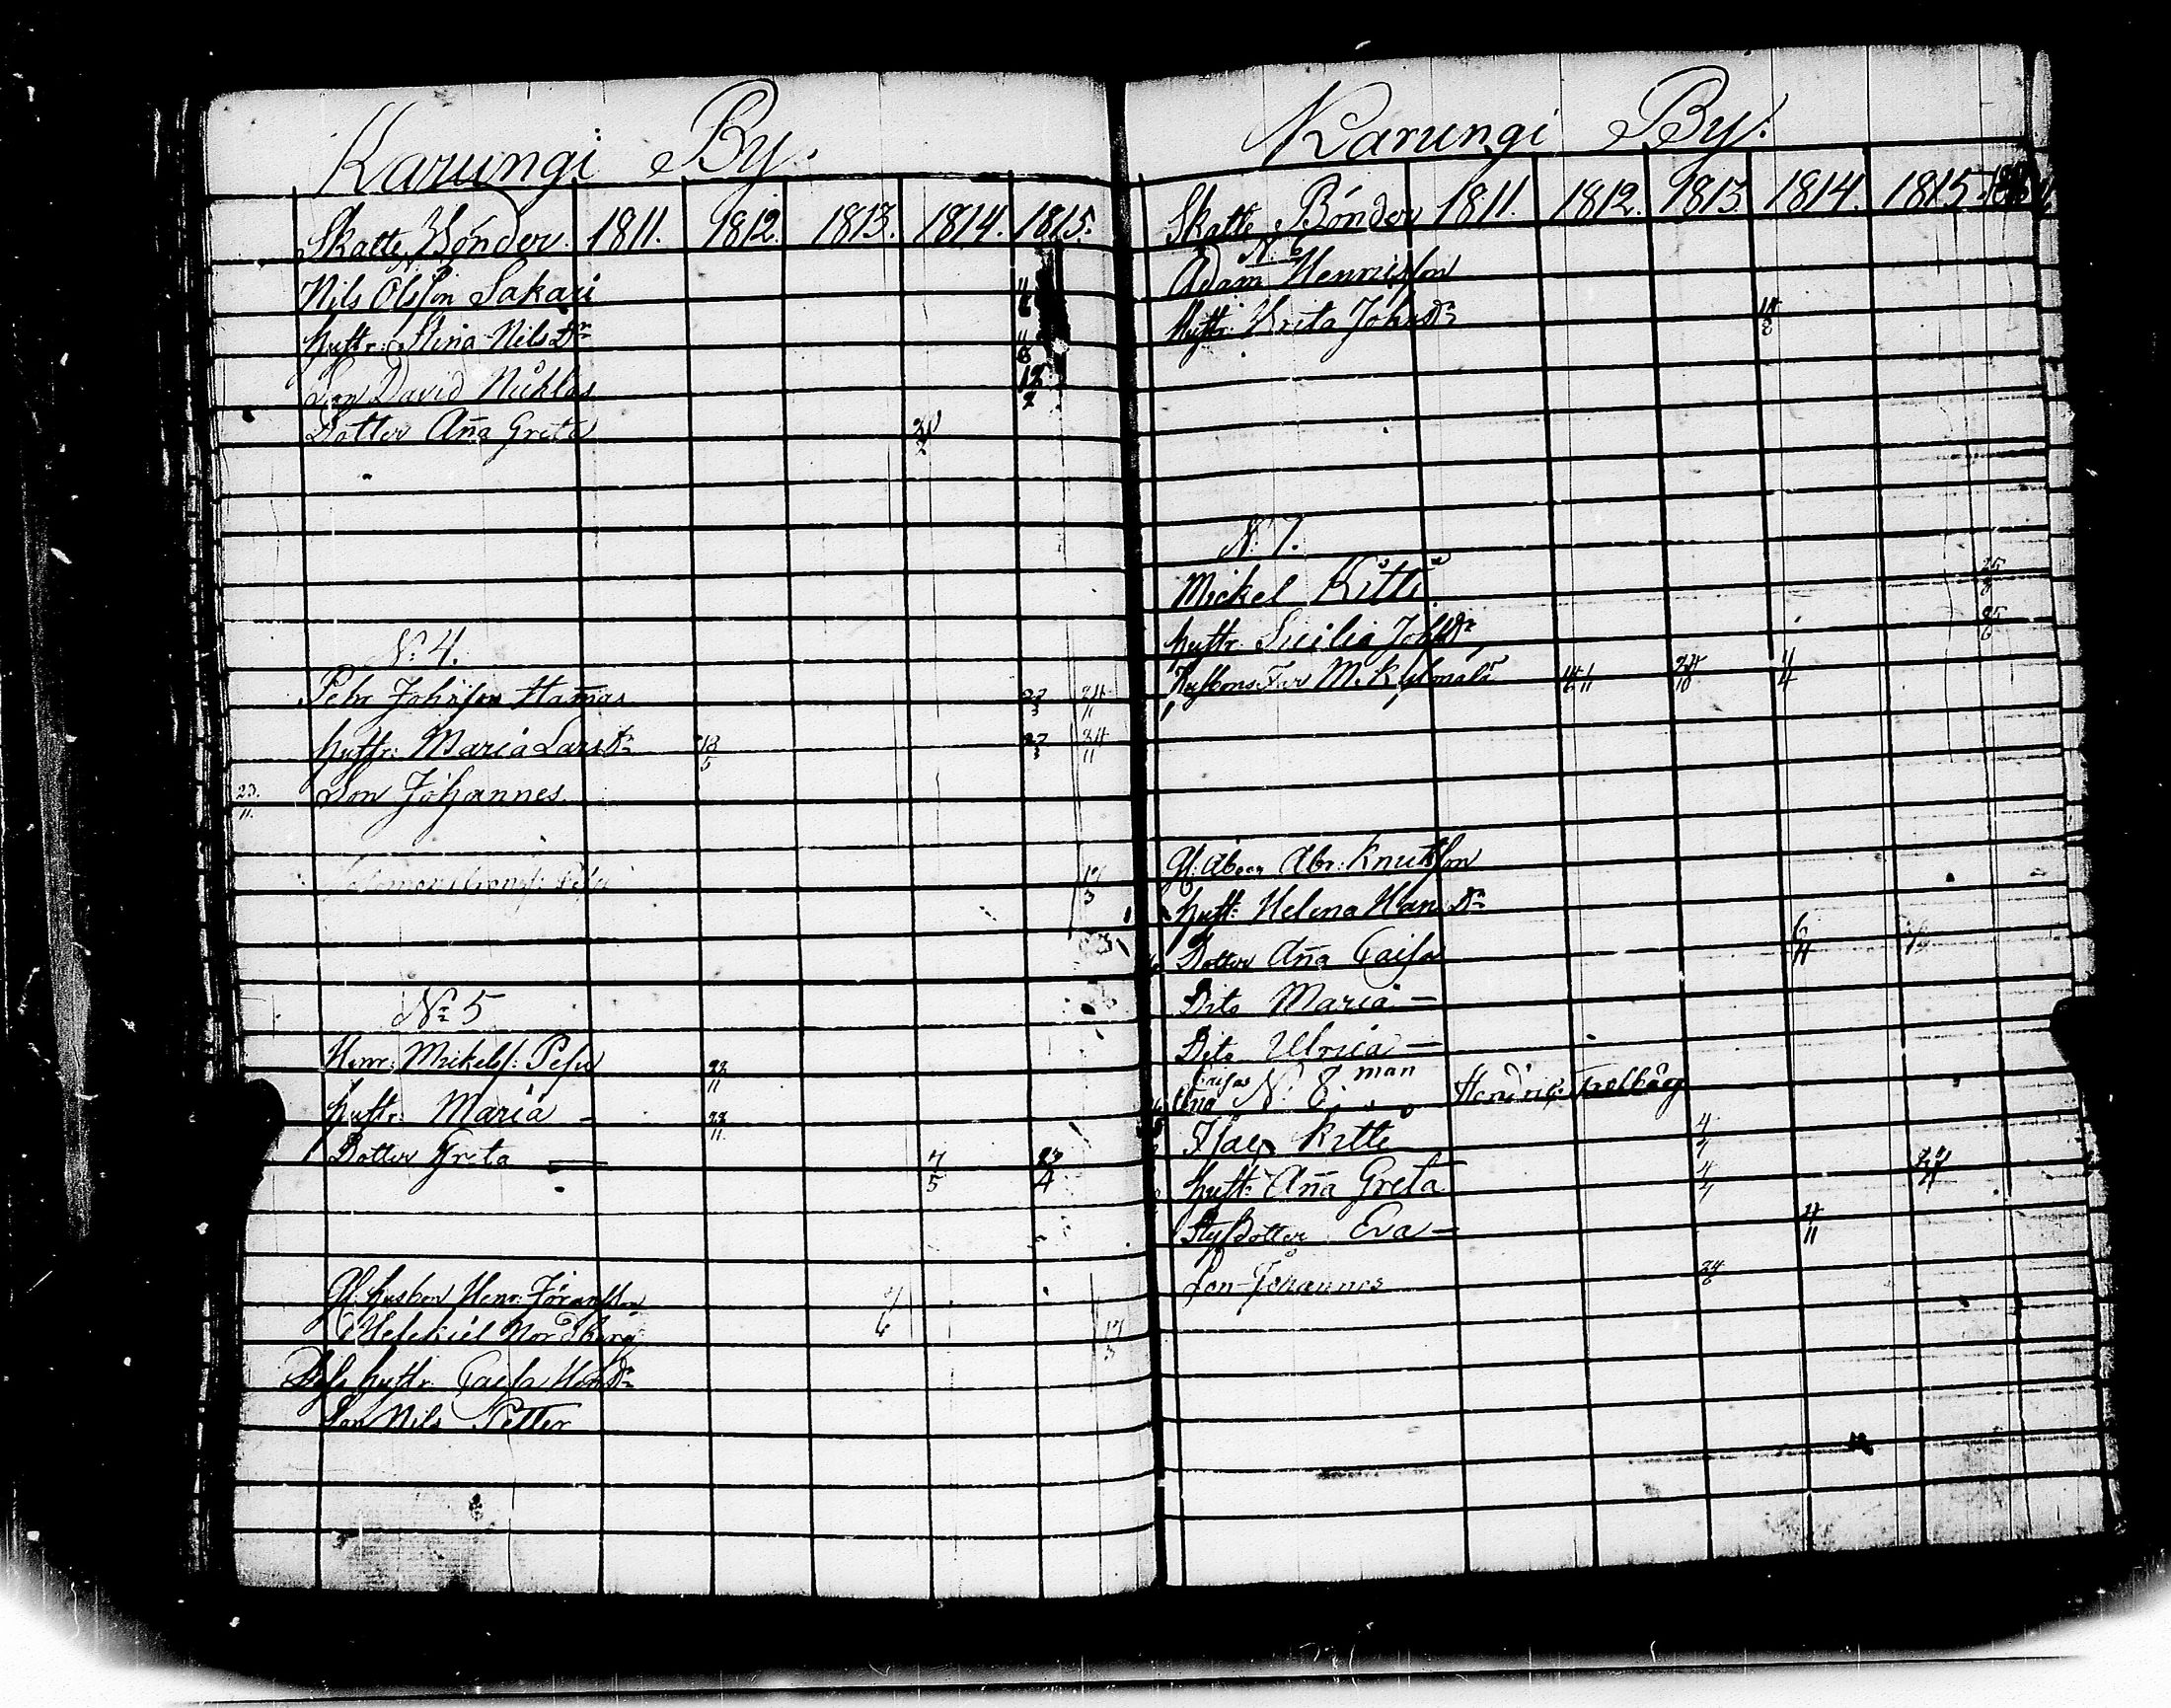 Karungi By.
Skatte Bönder. 1811. 1812. 1813. 1814. 1815.
Nils Olsson Lakari 11/6
hustr: Stina Nils Dr 11/6
Son David Nicklas 12/2
Dotter Aña Greta
N: 4.
Pehr Johnson Hamas 27/3 24/11
hustr: Maria Lars Dr 13/5 27/3 24/11
23/11. Son Johannes
17/3
Nr 5
Henr: Mickelss: Pesu 22/11
hustr: Maria — 22/11.
Dotter Greta — 7/5 27/4
Gl. husbon Henr: Jöransson
Hesekiel Nordberg 17/3
Dess hustr. Caisa Hen Dr
Son Nils Petter
Karungi By.
Skatte Bönder 1811. 1812. 1813. 1814. 1815.
N: 6
Adam Henricsson
hustr: Greta Johns Dr 18/8
N: 7.
Mickel Kitti
hustr. Sicilia Joh Dr
4/4
Gl: Åboen Abr: Knutsson
hustr: Helena Hans Dr
Dotter Aña Caisa
Dito Maria —
Dito Ulrica —
Caisas man
Aña N: 8. Hendric
Isac Kitti 4/7
hustr: Aña Greta 4/7
Styfdotter Eva — 4/11
Son Johannes 24/6